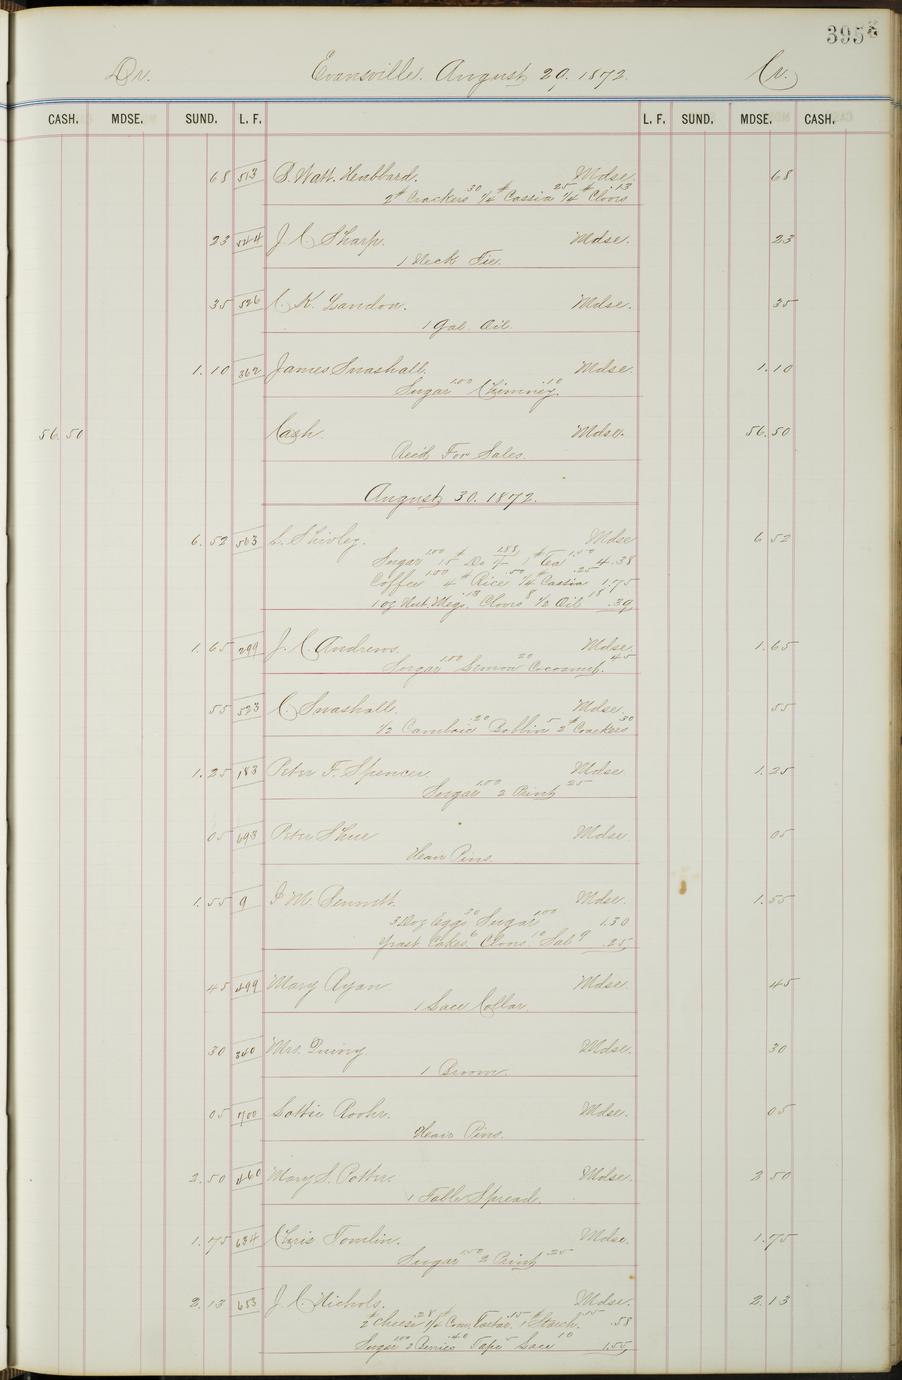 395
Dr. Evansville. August 29, 1872. Cr.
CASH. MDSE. SUND. L. F. L. F. SUND. MDSE. CASH.
68 513 S. Watt. Hubbard. Mdse. 68
2# Crackers 30 1/4# Cassia 25 1/4# Cloves 13
23 544 J. C. Sharp. Mdse. 23
1 Neck Tie.
35 526 C. K. Landon. Mdse. 35
1 Gal. Oil.
1.10 362 James Snashall. Mdse. 1.10
Sugar 1.00 Chimney. 10
56.50 Cash. Mdse. 56.50
Recd. For Sales.
August, 30. 1872.
6.52 503 S. Shively. Mdse 6 52
Sugar 1.00 15# Do 1.88 1# Tea 1.50 4.38
Coffee 1.00 4# Rice .50 1/4# Cassia .25 1.75
1 oz Nut. Megs. .13 Cloves 8 1/2 Oil 18 .39
1.65 299 J. C. Andrews. Mdse. 1.65
Sugar 1.00 Lemon 20 Cocoanut. 45
55 523 C. Snashall. Mdse. 55
1/2 Cambric .20 Bobbin 5 2# Crackers 30
1.25 183 Peter F. Spencer. Mdse 1.25
Sugar 1.00 2 Print 25
05 693 Peter Shue Mdse 05
Hair Pins.
1.55 9 I. M. Bennett. Mdse. 1.55
3 Doz Eggs 30 Sugar 1.00 1.30
Yeast Cakes 6 Cloves 10 Sal 9 .25
45 499 Mary Ryan Mdse 45
1 Lace Collar.
30 340 Mrs. Quivey. Mdse. 30
1 Broom.
05 700 Lottie Roohr. Mdse. 05
Hair Pins.
2.50 460 Mary S. Potter. Mdse. 2 50
1 Table Spread.
1.75 634 Chris Tomlin. Mdse. 1.75
Sugar 1.50 2 Print .25
2.13 653 J. C. Nichols. Mdse. 2.13
2# Cheese .28 1/4# Crm. Tartar. .15 1# Starch. .15 .58
Sugar 1.00 2 Berries .40 Tape 5 Lace 10 1.55